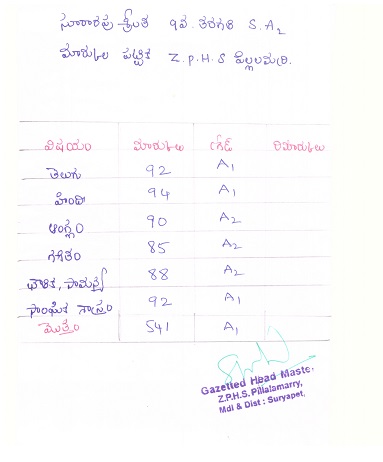 సూరారపు శ్రీలత 9వ తరగతి S.A2
మార్కుల పట్టిక Z.P.H.S పిల్లలమర్రి.
విషయం మార్కులు గ్రేడ్ రిమార్కులు
తెలుగు 92 A1
హిందీ 94 A1
ఆంగ్లం 90 A2
గణితం 85 A2
భౌతిక, సామాన్య 88 A2
సాంఘిక శాస్త్రం 92 A1
మొత్తం 541 A1
Gazetted Head Maste.
Z.P.H.S. Pillalamarry,
Mdl & Dist : Suryapet,